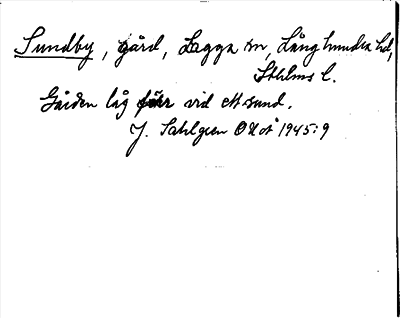 Sundby, gård, Lagga sn, Långhundra hd,
Sthlms l.
Gården låg förr vid ett sund.
J. Sahlgren OUÅ 1945:9